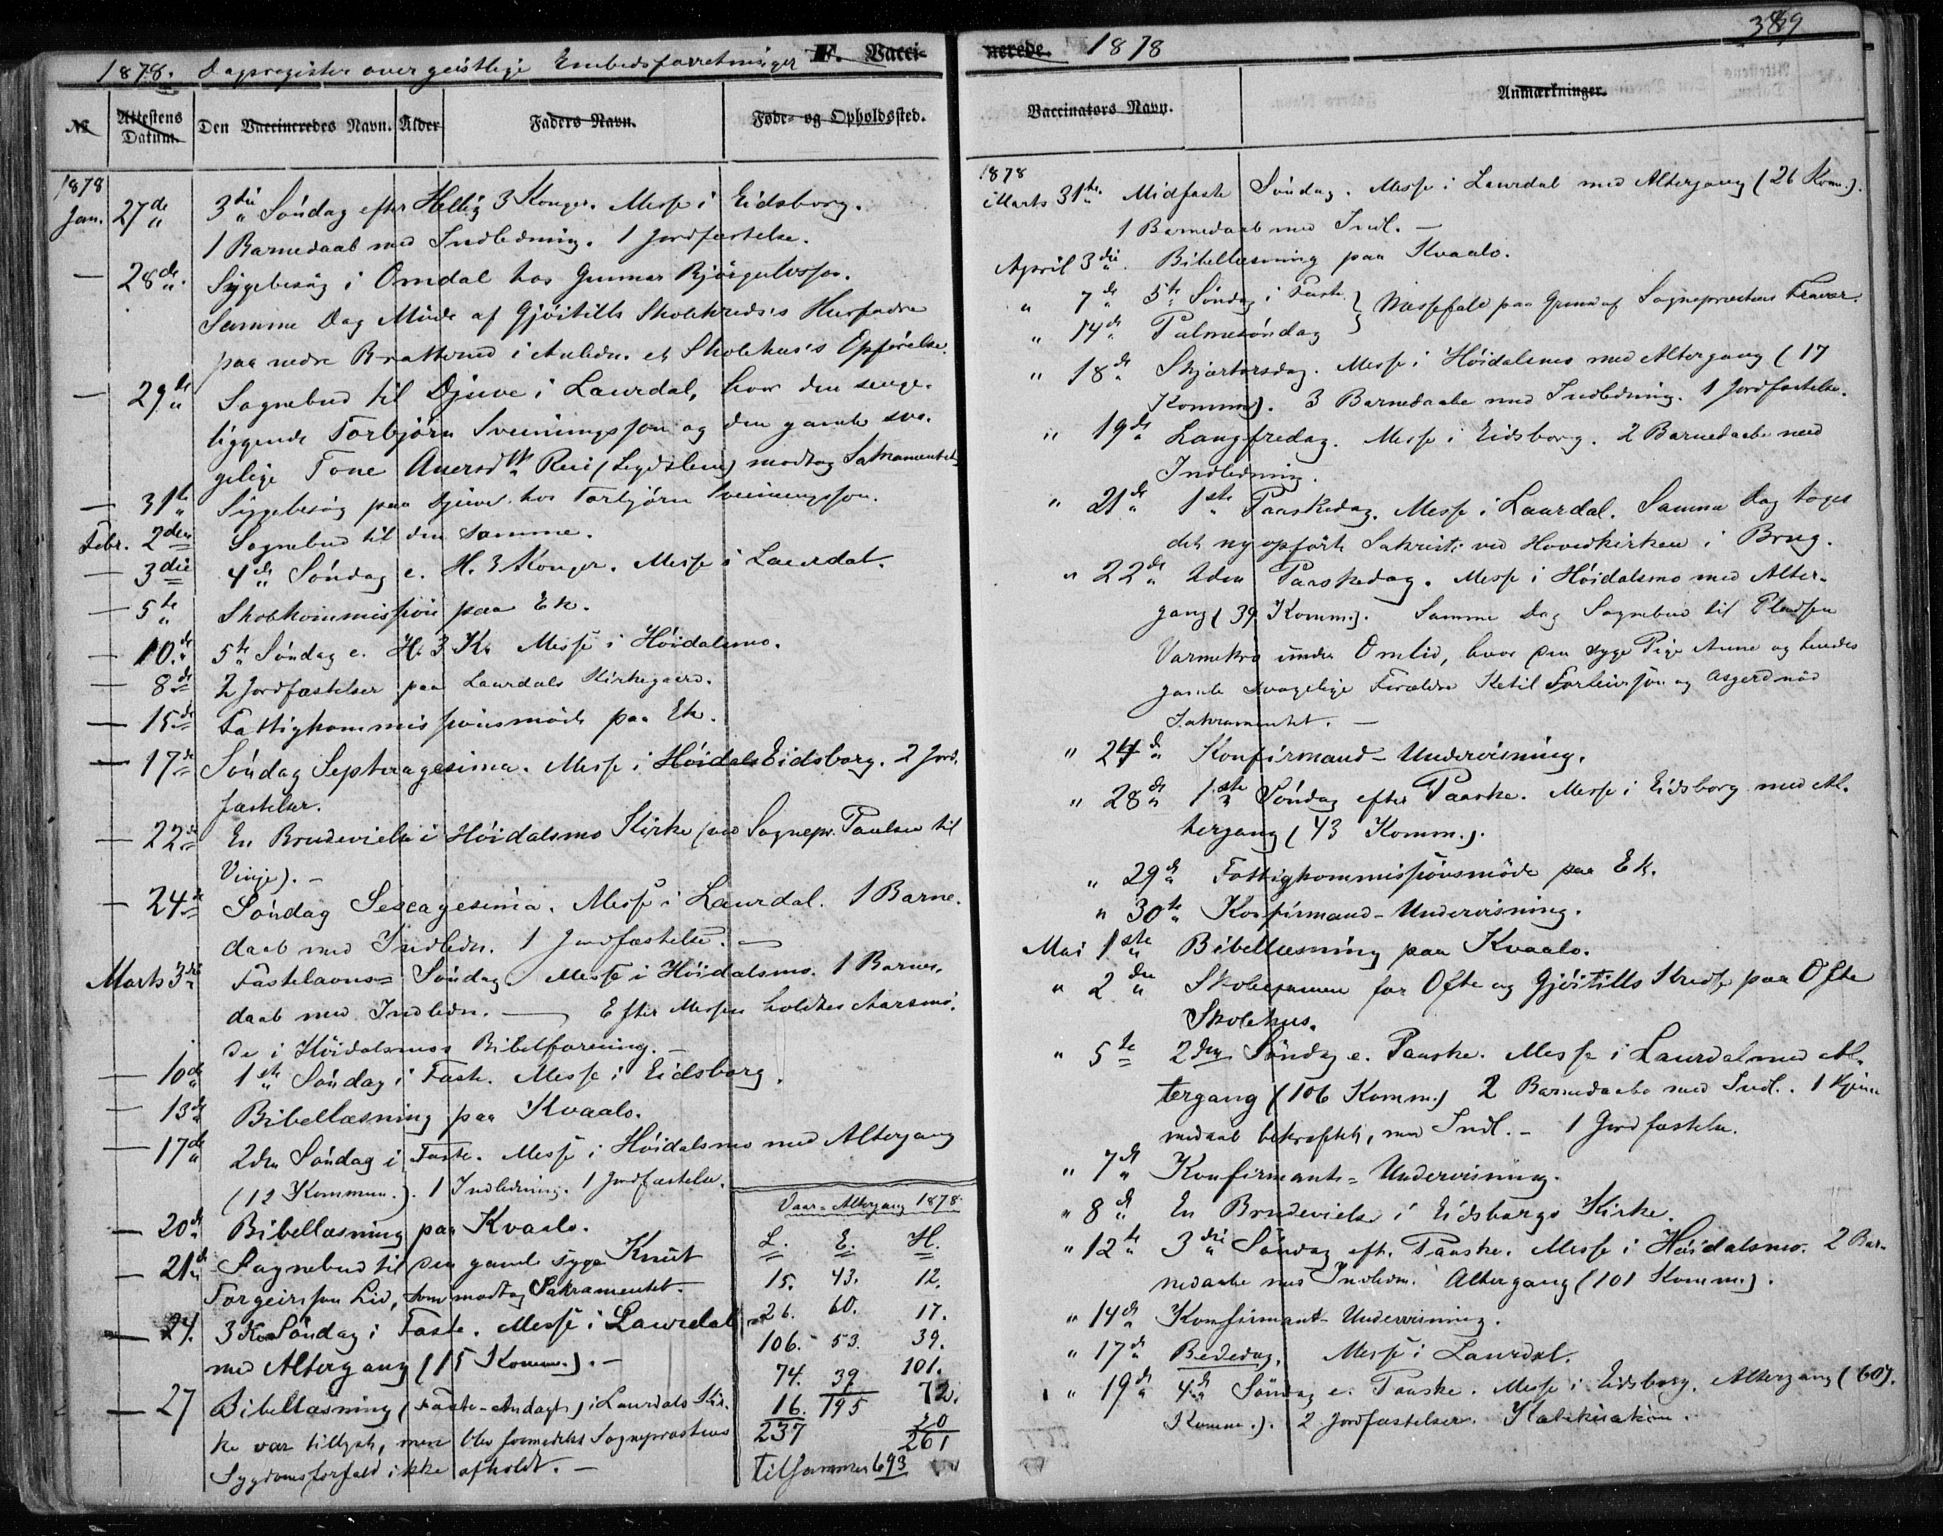 1878. Dagsregister over geistlige Embedsforretninger F. Vacci-
No
Attestens Datum.
Den Vaccineredes Navn.
Alder
Faders Navn.
Føde- og Opholdssted.
1878
Jan. 27de 3die Søndag efter Hellig 3 Konger. Messe i Eidsborg.
1 Barnedaab med Indledning. 1 Jordfæstelse.
— 28de Sygebesøg i Omdal hos Gunnar Bjørgulvsson.
Samme Dag Møde af Gjøitills Skolekreds's Husfædre
paa nedre Brattend i Anledn. et Skolehus's Opførelse.
— 29de Sognebud til Djuve i Laurdal, hvor den senge-
liggende Torbjørn Sveinungsson og den gamle sva-
gelige Tone Aversd. Rui (Legdslem) modtog Sakramentet.
— 31te Sygebesøg paa Djuve hos Torbjørn Sveinungsson.
Febr. 2den Sognebud til den samme.
— 3die 4de Søndag e. H. 3 Konger. Messe i Laurdal.
— 5te Skolekommission paa Ek.
— 10de 5te Søndag e. H. 3 K. Messe i Høidalsmo.
— 8de 2 Jordfæstelser paa Laurdals Kirkegaard.
— 15de Fattigkommissionsmøde paa Ek.
— 17de Søndag Septuagesima. Messe i Høidals Eidsborg. 2 Jord-
fæstelser.
— 22de En Brudevielse i Høidalsmo Kirke (ved Sognepr. Paulsen til
Vinje). —
— 24de Søndag Sexagesima. Messe i Laurdal. 1 Barne-
daab med Indledn. 1 Jordfæstelse. —
Marts 3die Fastelavns- Søndag. Messe i Høidalsmo. 1 Barne-
daab med Indledn. — Efter Messen holdtes Aarsmø-
de i Høidalsmos Bibelforening. —
— 10de 1ste Søndag i Faste. Messe i Eidsborg.
— 13de Bibellæsning paa Kvaale.
— 17de 2den Søndag i Faste. Messe i Høidalsmo med Altergang
(12 Kommun.). 1 Indledning. 1 Jordfæstelse.
— 20de Bibellæsning paa Kvaale.
— 21de Sognebud til den gamle syge Knut
Torgeirsson Lid, som modtog Sakramentet.
— 24. 3die Søndag i Faste. Messe i Laurdal
med Altergang (15 Komm.). —
— 27 Bibellæsning (Faste-Andagt) i Laurdals Kir-
ke var tillyst, men blev formedelst Sognepræstens
Sygdomsforfald ikke afholdt. —
Vaar-Altergang 1878.
L. E. H.
15. 43. 12.
26. 60. 17.
106. 53. 39.
74. 39 101.
16. 195 72.
237 20
261
tilsammen 693
nerede. 1878
389
Vaccinators Navn.
Anmærkninger.
1878
Marts 31te Midfaste Søndag. Messe i Laurdal med Altergang (26 Komm.).
1 Barnedaab med Indl. —
April 3die Bibellæsning paa Kvaale.
" 7de 5te Søndag i Faste } Messefald paa Grund af Sognepræstens Fravær.
" 14de Palmesøndag
" 18de Skjærtorsdag. Messe i Høidalsmo med Altergang (17
Komm.). 3 Barnedaabe med Indledning. 1 Jordfæstelse.
" 19de Langfredag. Messe i Eidsborg. 2 Barnedaabe med
Indledning.
" 21de 1ste Paaskedag. Messe i Laurdal. Samme Dag toges
det ny opførte Sakristi ved Hovedkirken i Brug.
" 22de 2den Paaskedag. Messe i Høidalsmo med Alter-
gang (39 Komm.). Samme Dag Sognebud til Pladsen
Varmekro under Omlid, hvor den syge Pige Anne og hendes
gamle svagelige Forældre Ketil Torleivsson og Asgerd nød
Sakramentet. —
" 24de Konfirmand-Undervisning.
" 28de 1ste Søndag efter Paaske. Messe i Eidsborg med Al-
tergang (43 Komm.).
" 29de Fattigkommissionsmøde paa Ek.
" 30te Konfirmand-Undervisning.
Mai 1ste Bibellæsning paa Kvaale.
" 2den Skoleexamen for Ofte og Gjøitills Kreds paa Ofte
Skolehus.
" 5te 2den Søndag e. Paaske. Messe i Laurdal med Al-
tergang (106 Komm.) 2 Barnedaabe med Indl. 1 Hjem-
medaab bekræftet, med Indl. — 1 Jordfæstelse.
" 7de Konfirmant-Undervisning.
" 8de En Brudevielse i Eidsborgs Kirke.
" 12te 3die Søndag eft. Paaske. Messe i Høidalsmo. 2 Bar-
nedaabe med Indledn. Altergang (101 Komm.).
" 14de Konfirmant-Undervisning.
" 17de Bededag. Messe i Laurdal.
" 19de 4de Søndag e. Paaske. Messe i Eidsborg. Altergang (60
Komm.). 2 Jordfæstelser. Katekisation.